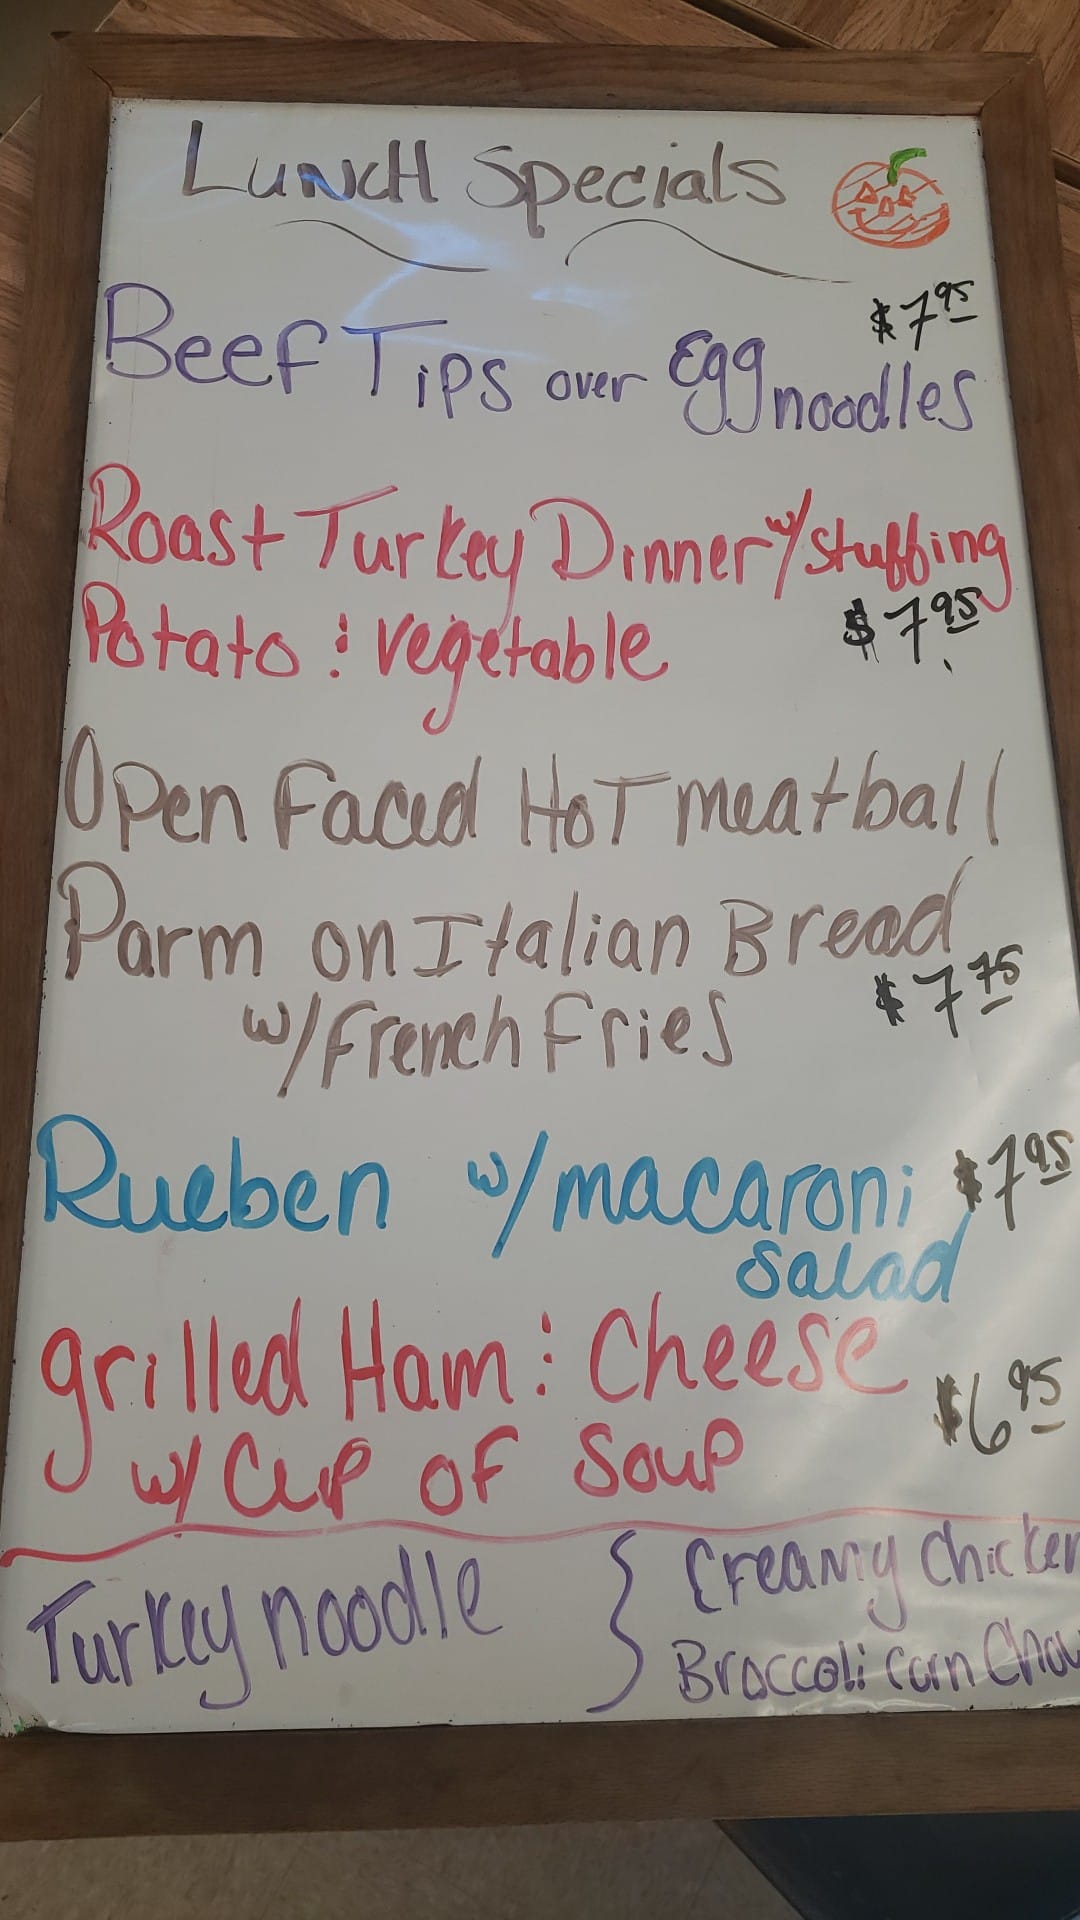 Lunch Specials
$7.95
Beef Tips over Egg noodles
Roast Turkey Dinner w/stuffing
Potato : vegetable $7.95
Open Faced Hot meatball
Parm on Italian Bread
w/French Fries $7.75
Rueben w/macaroni $7.95
salad
grilled Ham : Cheese
w/ Cup of Soup $6.95
Turkey noodle } Creamy Chicken
Broccoli Corn Chow